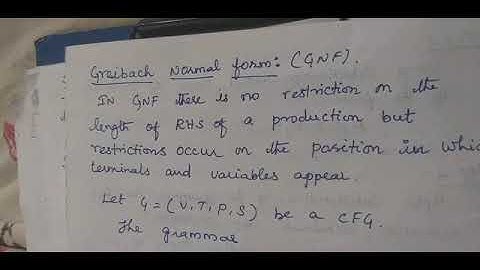 Greibach Normal form: (GNF).
IN GNF there is no restriction on the
length of RHS of a production but
restrictions occur on the position in whic
terminals and variables appear.
Let G = (V, T, P, S) be a CFG.
The grammar